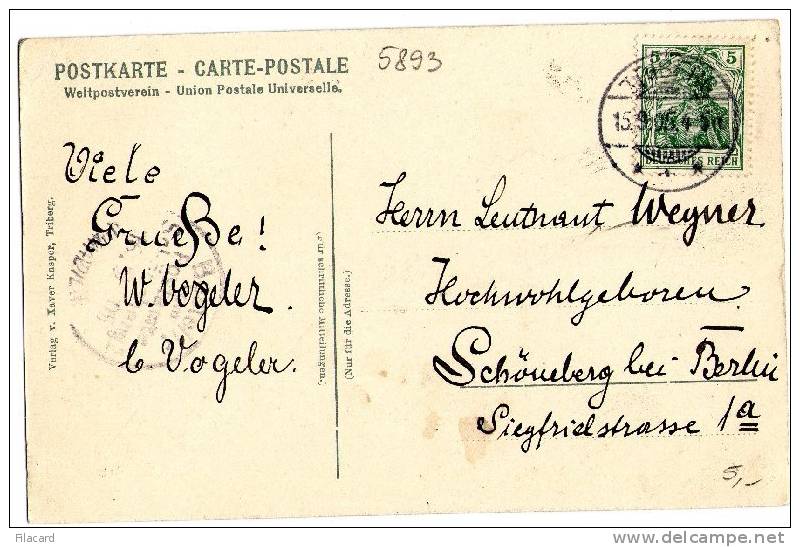 5893
POSTKARTE - CARTE-POSTALE
Weltpostverein - Union Postale Universelle.
5 5
DEUTSCHES REICH
Viele
Grueße!
W. Vogeler.
b Vogeler.
Verlag v. Xaver Kasper, Triberg.
(Für schriftliche Mitteilungen.)
(Nur für die Adresse.)
Herrn Leutnant Wegner
Hochwohlgeboren.
Schöneberg bei Berlin
Siegfriedstrasse 1a
5,-
Filacard
www.delcampe.net